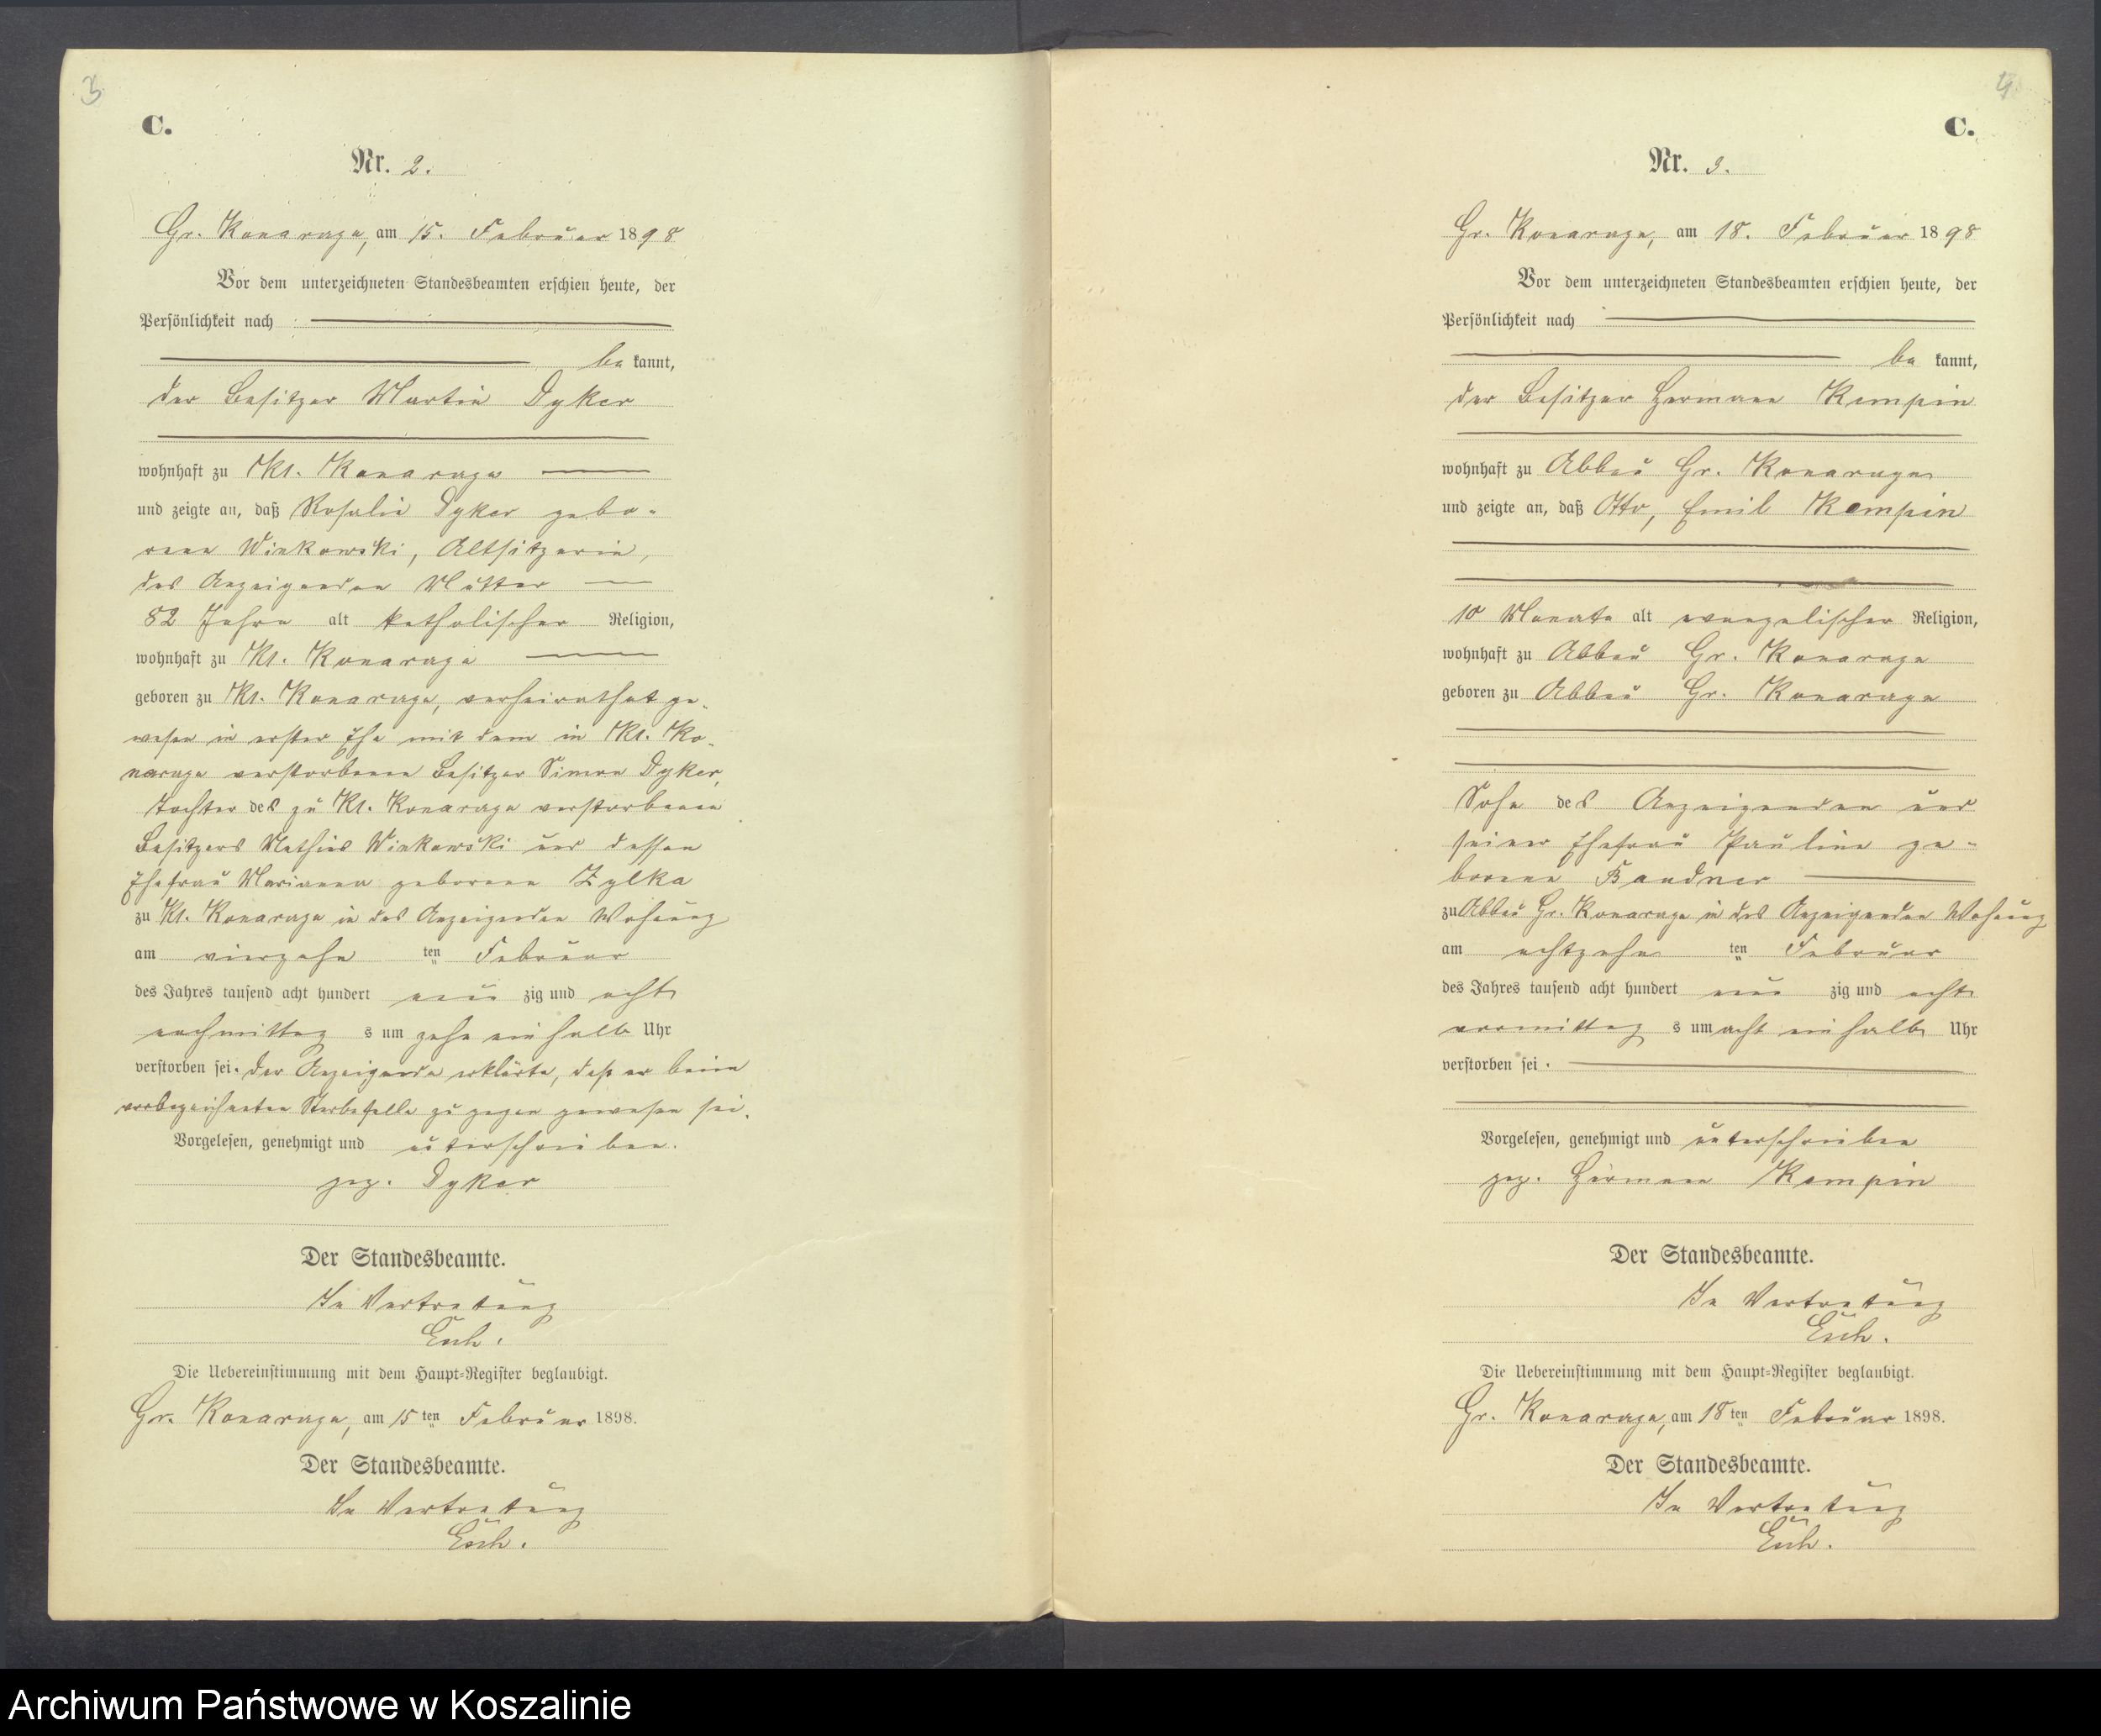 3
C.
Nr. 2.
Gr. Konarzyn, am 15. Februar 1898
Vor dem unterzeichneten Standesbeamten erschien heute, der
Persönlichkeit nach
bekannt,
der Besitzer Martin Dyker
wohnhaft zu Kl. Konarzyn
und zeigte an, daß Rosalie Dyker gebo-
rene Winkowski, Altsitzerin,
des Anzeigenden Mutter
82 Jahre alt katholischer Religion,
wohnhaft zu Kl. Konarzyn
geboren zu Kl. Konarzyn, verheirathet ge-
wesen in erster Ehe mit dem in Kl. Ko-
narzyn verstorbenen Besitzer Simon Dyker,
Tochter des zu Kl. Konarzyn verstorbenen
Besitzers Mathias Winkowski und dessen
Ehefrau Marianna geborene Zylka
zu Kl. Konarzyn in des Anzeigenden Wohnung
am vierzehnten Februar
des Jahres tausend acht hundert neunzig und acht
nachmittags um zehn einhalb Uhr
verstorben sei. Der Anzeigende erklärte, daß er beim
vorbezeichneten Sterbefalle zu gegen gewesen sei.
Vorgelesen, genehmigt und unterschrieben.
gez. Dyker
Der Standesbeamte.
In Vertretung
Esch.
Die Uebereinstimmung mit dem Haupt-Register beglaubigt.
Gr. Konarzyn, am 15ten Februar 1898.
Der Standesbeamte.
In Vertretung
Esch.
4
C.
Nr. 3.
Gr. Konarzyn, am 18. Februar 1898
Vor dem unterzeichneten Standesbeamten erschien heute, der
Persönlichkeit nach
bekannt,
der Besitzer Hermann Kempin
wohnhaft zu Abbau Gr. Konarzyn
und zeigte an, daß Otto, Emil Kempin
10 Monate alt evangelischer Religion,
wohnhaft zu Abbau Gr. Konarzyn
geboren zu Abbau Gr. Konarzyn
Sohn des Anzeigenden und
seiner Ehefrau Pauline ge-
borene Bandner
zu Abbau Gr. Konarzyn in des Anzeigenden Wohnung
am achtzehnten Februar
des Jahres tausend acht hundert neunzig und acht
vormittags um acht einhalb Uhr
verstorben sei.
Vorgelesen, genehmigt und unterschrieben
gez. Hermann Kempin
Der Standesbeamte.
In Vertretung
Esch.
Die Uebereinstimmung mit dem Haupt-Register beglaubigt.
Gr. Konarzyn, am 18ten Februar 1898.
Der Standesbeamte.
In Vertretung
Esch.
Archiwum Państwowe w Koszalinie